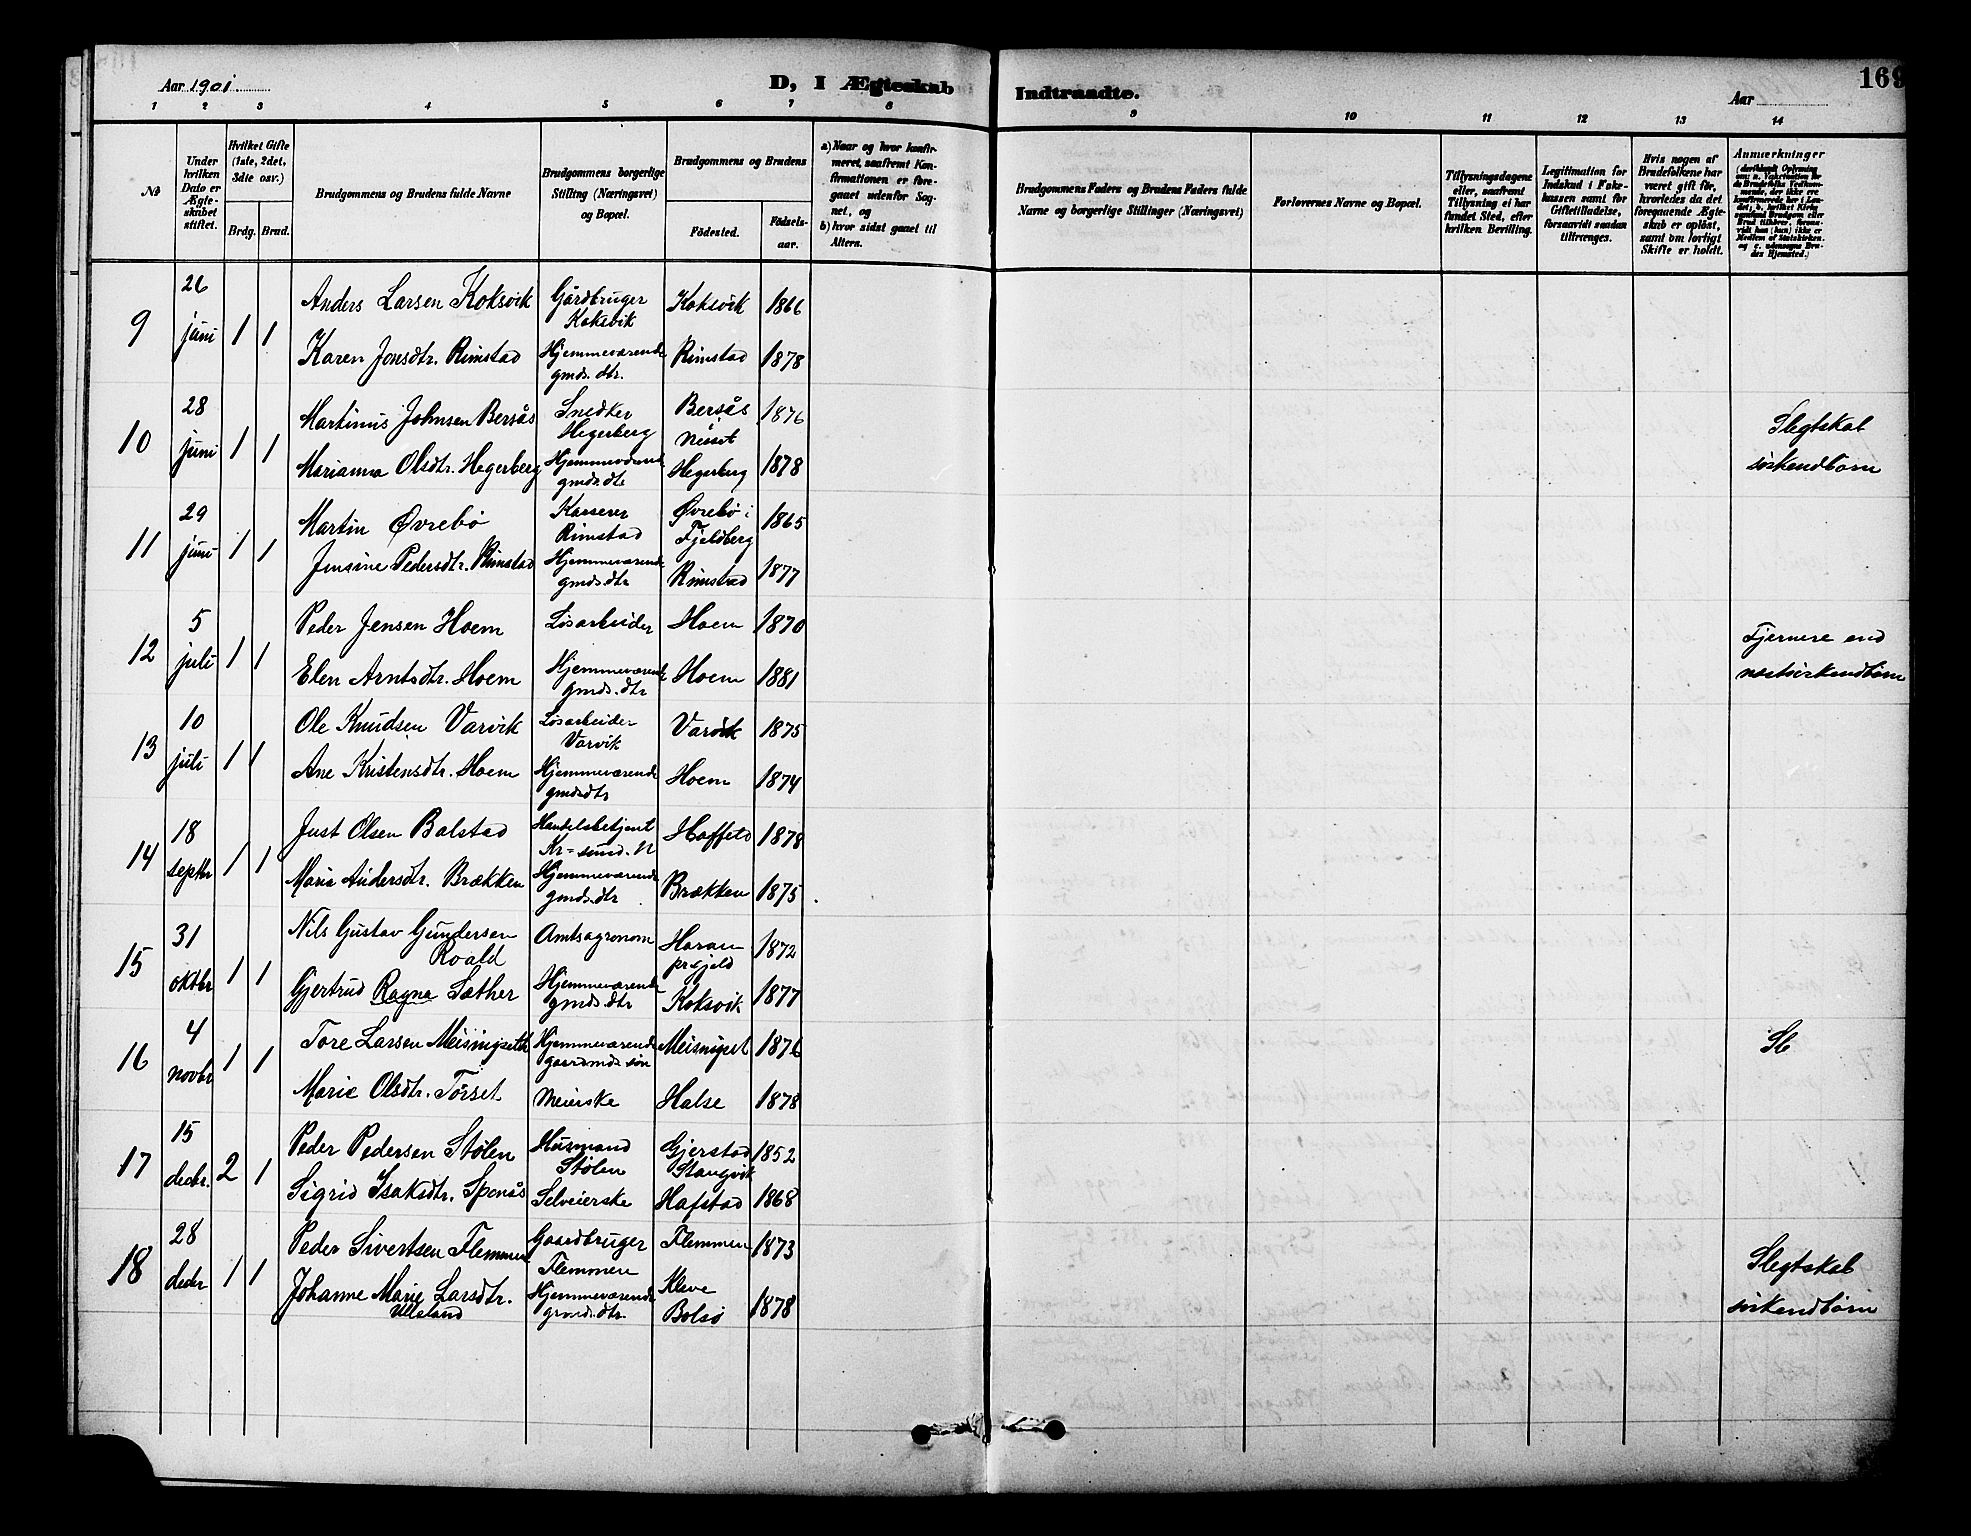 Aar 1901
D, I Ægteskab Indtraadte.
Aar
169
1 2 3 4 5 6 7 8 9 10 11 12 13 14
No
Under hvilken Dato er Ægteskabet stiftet.
Hvilket Gifte (1ste, 2det, 3die osv.)
Brdg. Brud.
Brudgommens og Brudens fulde Navne
Brudgommens borgerlige Stilling (Næringsvei) og Bopæl.
Brudgommens og Brudens
Fødested.
Fødselsaar.
a) Naar og hvor konfirmeret, saafremt Konfirmationen er foregaaet udenfor Sognet, og
b) hvor sidst gaaet til Alters.
Brudgommens Faders og Brudens Faders fulde Navne og borgerlige Stillinger (Næringsvei)
Forlovernes Navne og Bopæl.
Tillysningsdagene eller, saafremt Tillysning ei har fundet Sted, efter hvilken Bevilling.
Legitimation for Indskud i Fakekassen samt for Giftetilladelse, forsaavidt saadan tiltrænges.
Hvis nogen af Brudefolkene har været gift før, hvorledes da det foregaaende Ægteskab er opløst, samt om lovligt Skifte er holdt.
Anmærkninger
9 26 juni 1 1 Anders Larsen Koksvik Gårdbruger Koksvik Koksvik 1866
Karen Jonsdtr. Rimstad Hjemmeværende gmds. dtr. Rimstad 1878
10 28 juni 1 1 Martinus Johnsen Bersås Snedker Hegerberg Bersås Nesset 1876 Slegtskab
Marianna Olsdtr. Hegerberg Hjemmeværende gmds.dtr Hegerberg 1878 søskendbørn
11 29 juni 1 1 Martin Øvrebø Kasserer Rimstad Øvrebø i Fjeldberg 1865
Jensine Pedersdtr. Rimstad Hjemmeværende gmds.dtr Rimstad 1877
12 5 juli 1 1 Peder Jensen Hoem Løsarbeider Hoem 1870 Fjernere end
Elen Arntsdtr. Hoem Hjemmeværende gmds.dtr Hoem 1881 næstsøskendbørn
13 10 juli 1 1 Ole Knudsen Varvik Løsarbeider Varvik Varvik 1875
Ane Kristensdtr. Hoem Hjemmeværende gmds.dtr Hoem 1874
14 18 septbr 1 1 Just Olsen Balstad Handelsbetjent Kr=sund. N Hoffeld 1878
Marie Andersdtr. Brækken Hjemmeværende gmds.dtr Brækken 1875
15 31 oktbr 1 1 Nils Gustav Gundersen Roald Amtsagronom Haram prgjeld 1872
Gjertrud Ragna Sæther Hjemmeværende gmds.dtr Koksvik 1877
16 4 novbr 1 1 Tore Larsen Meisingseth Hjemmeværende gaardmds søn Meisingset 1876 Sb
Marie Olsdtr. Torset Meierske Halse 1878
17 15 decbr. 2 1 Peder Pedersen Stølen Husmand Stølen Gjerstad Stangvik 1852
Sigrid Isaksdtr. Sponås Selveierske Hafstad 1868
18 28 decbr 1 1 Peder Sivertsen Flemmen Gaardbruger Flemmen Flemmen 1873 Slegtskab
Johanne Marie Larsdtr. Ulleland Hjemmeværende gmds.dtr Kleve Bolsø 1878 søskendbørn